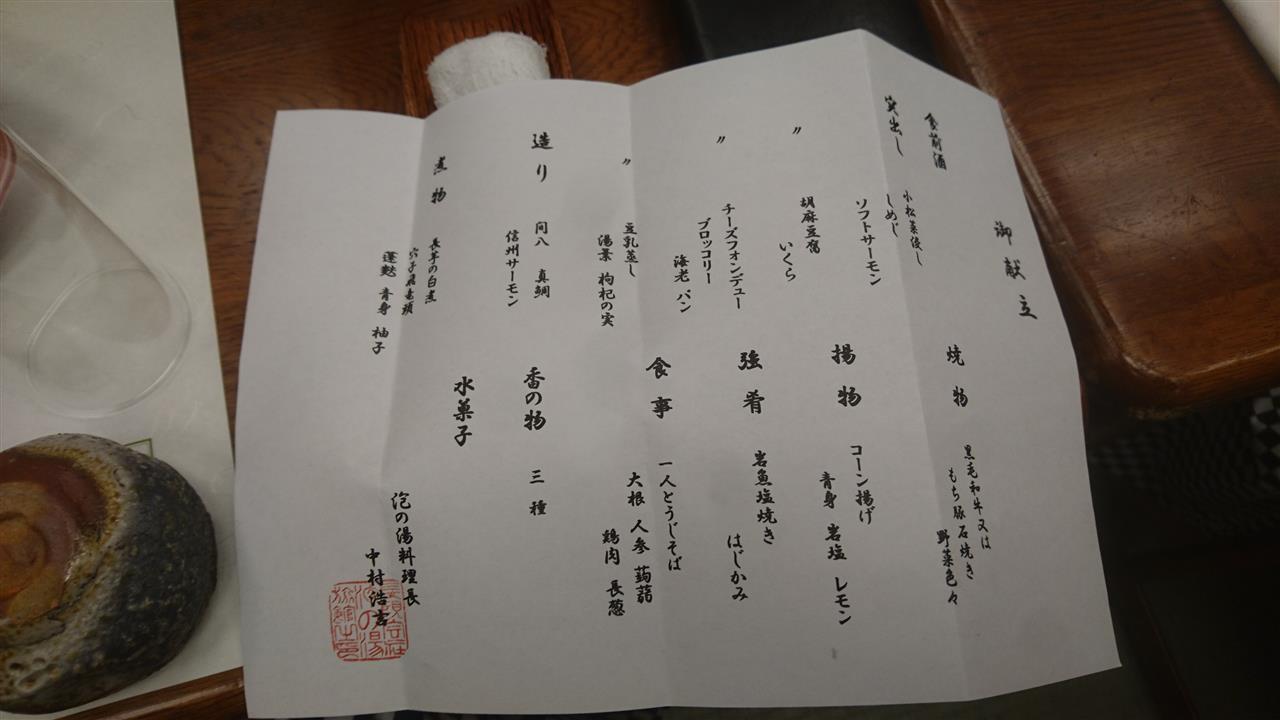 御献立
食前酒
笑出し 小松菜浸し
しめじ
ソフトサーモン
〃 胡麻豆腐
いくら
〃 チーズフォンデュー
ブロッコリー
海老 パン
〃 豆乳蒸し
湯葉 枸杞の実
造り 間八 真鯛
信州サーモン
煮物 長芋の白煮
穴子飛竜頭
蓬麩 青身 柚子
焼物 黒毛和牛又は
もち豚石焼き
野菜色々
揚物 コーン揚げ
青身 岩塩 レモン
強肴 岩魚塩焼き
はじかみ
食事 一人とうじそば
大根 人参 蒟蒻
鶏肉 長葱
香の物 三種
水菓子
泡の湯料理長
中村浩吉